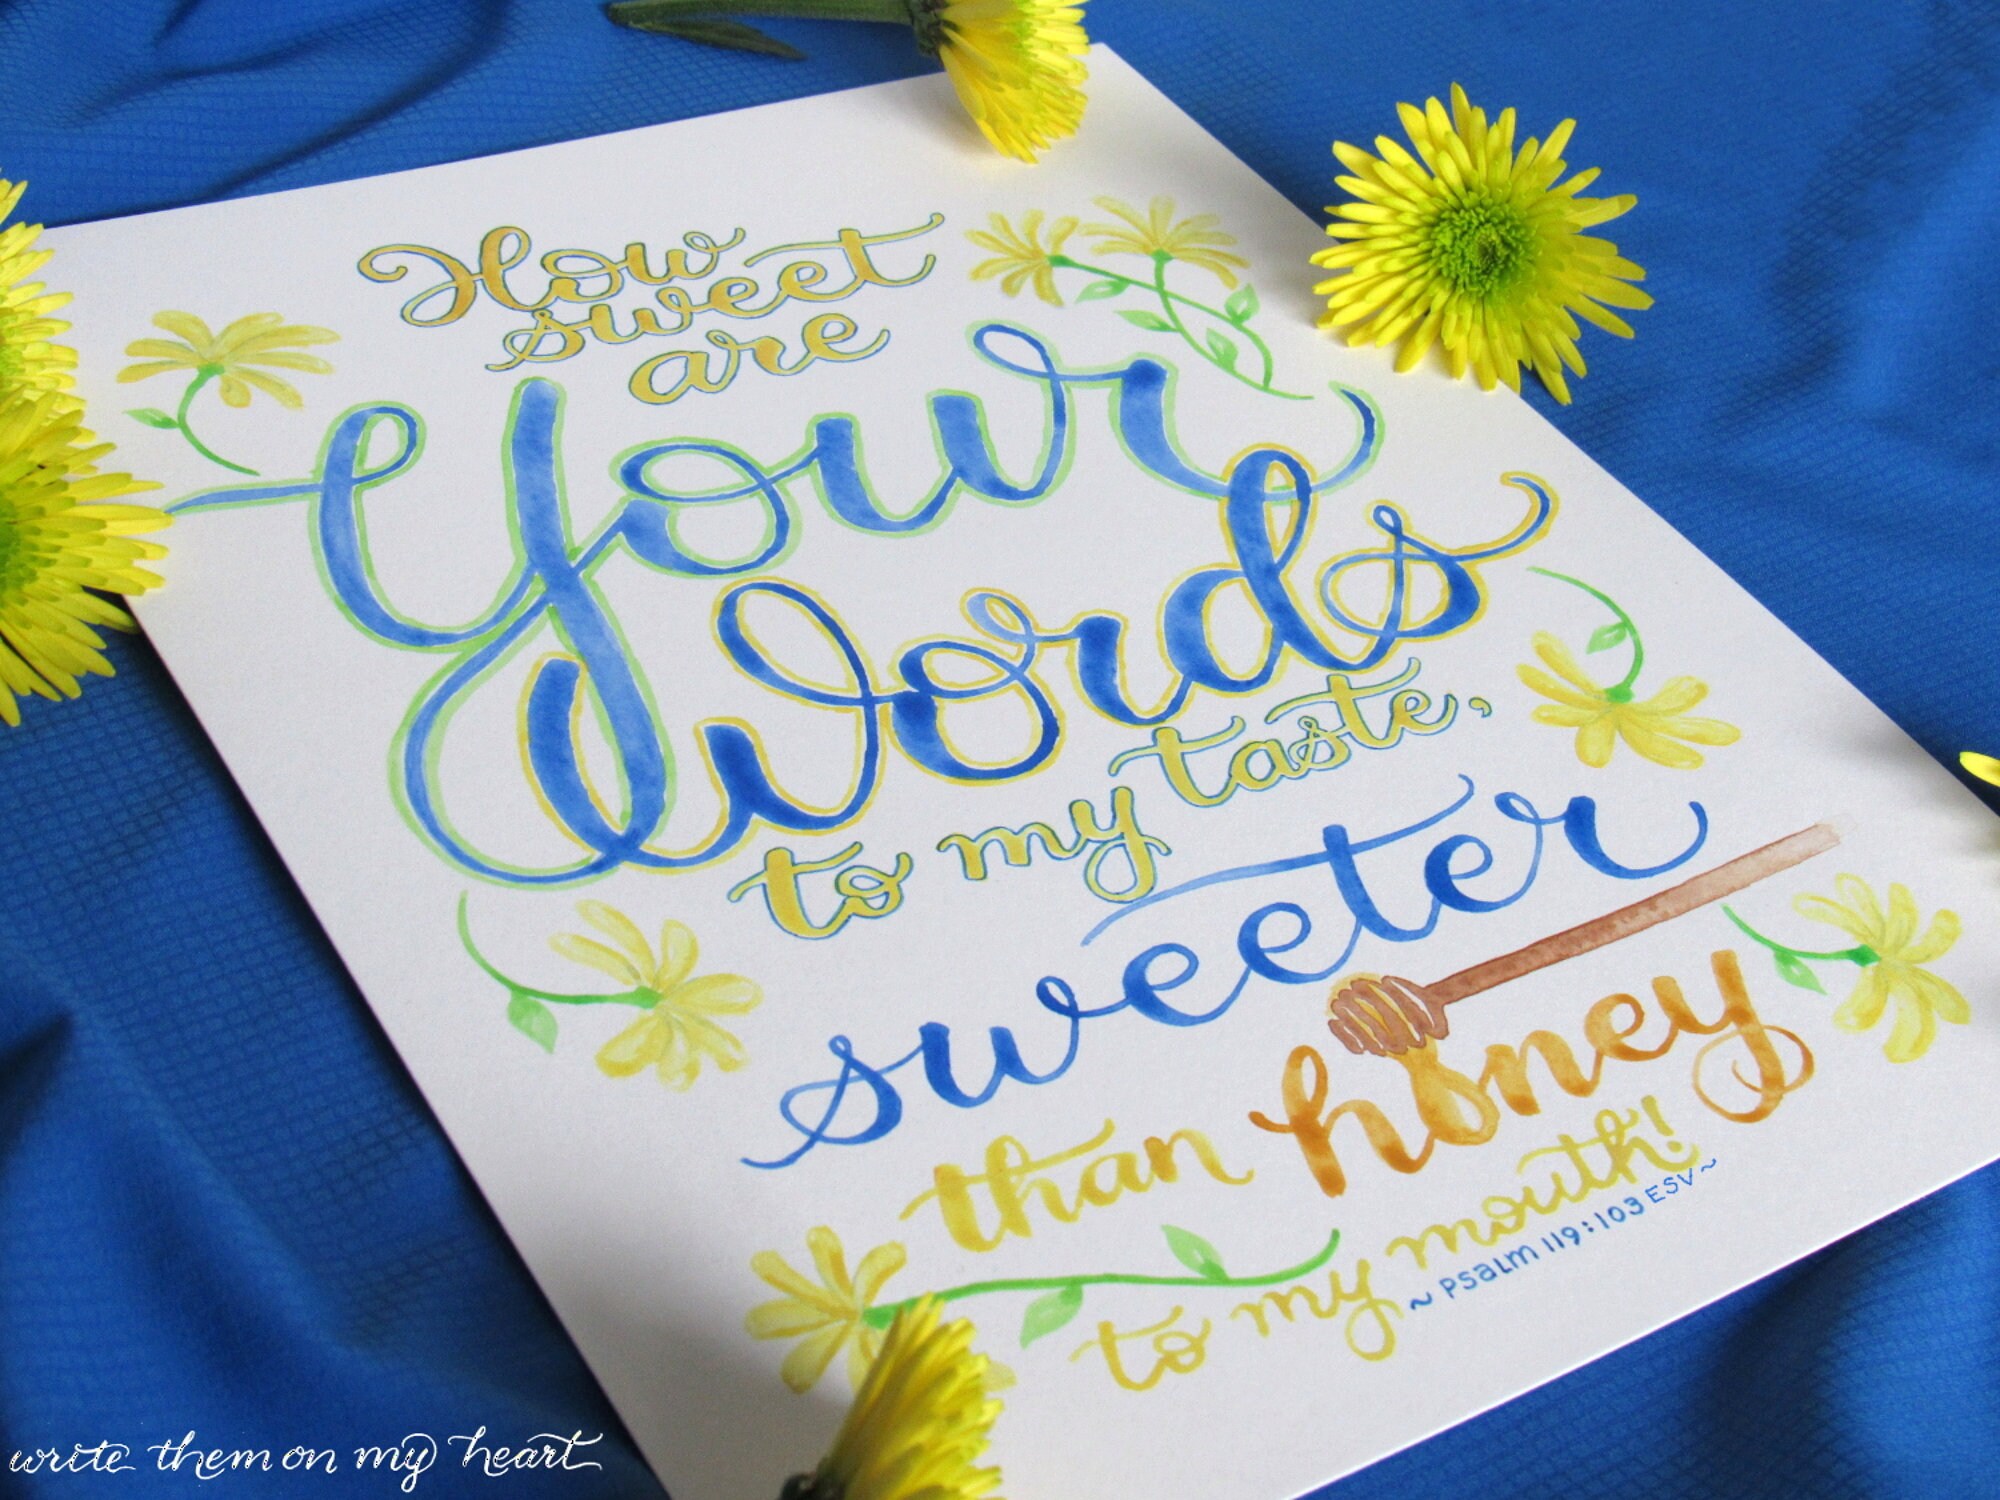 How
sweet
are
Your
Words
to my taste,
sweeter
than honey
to my mouth!
~ PSALM 119:103 ESV ~
write them on my heart